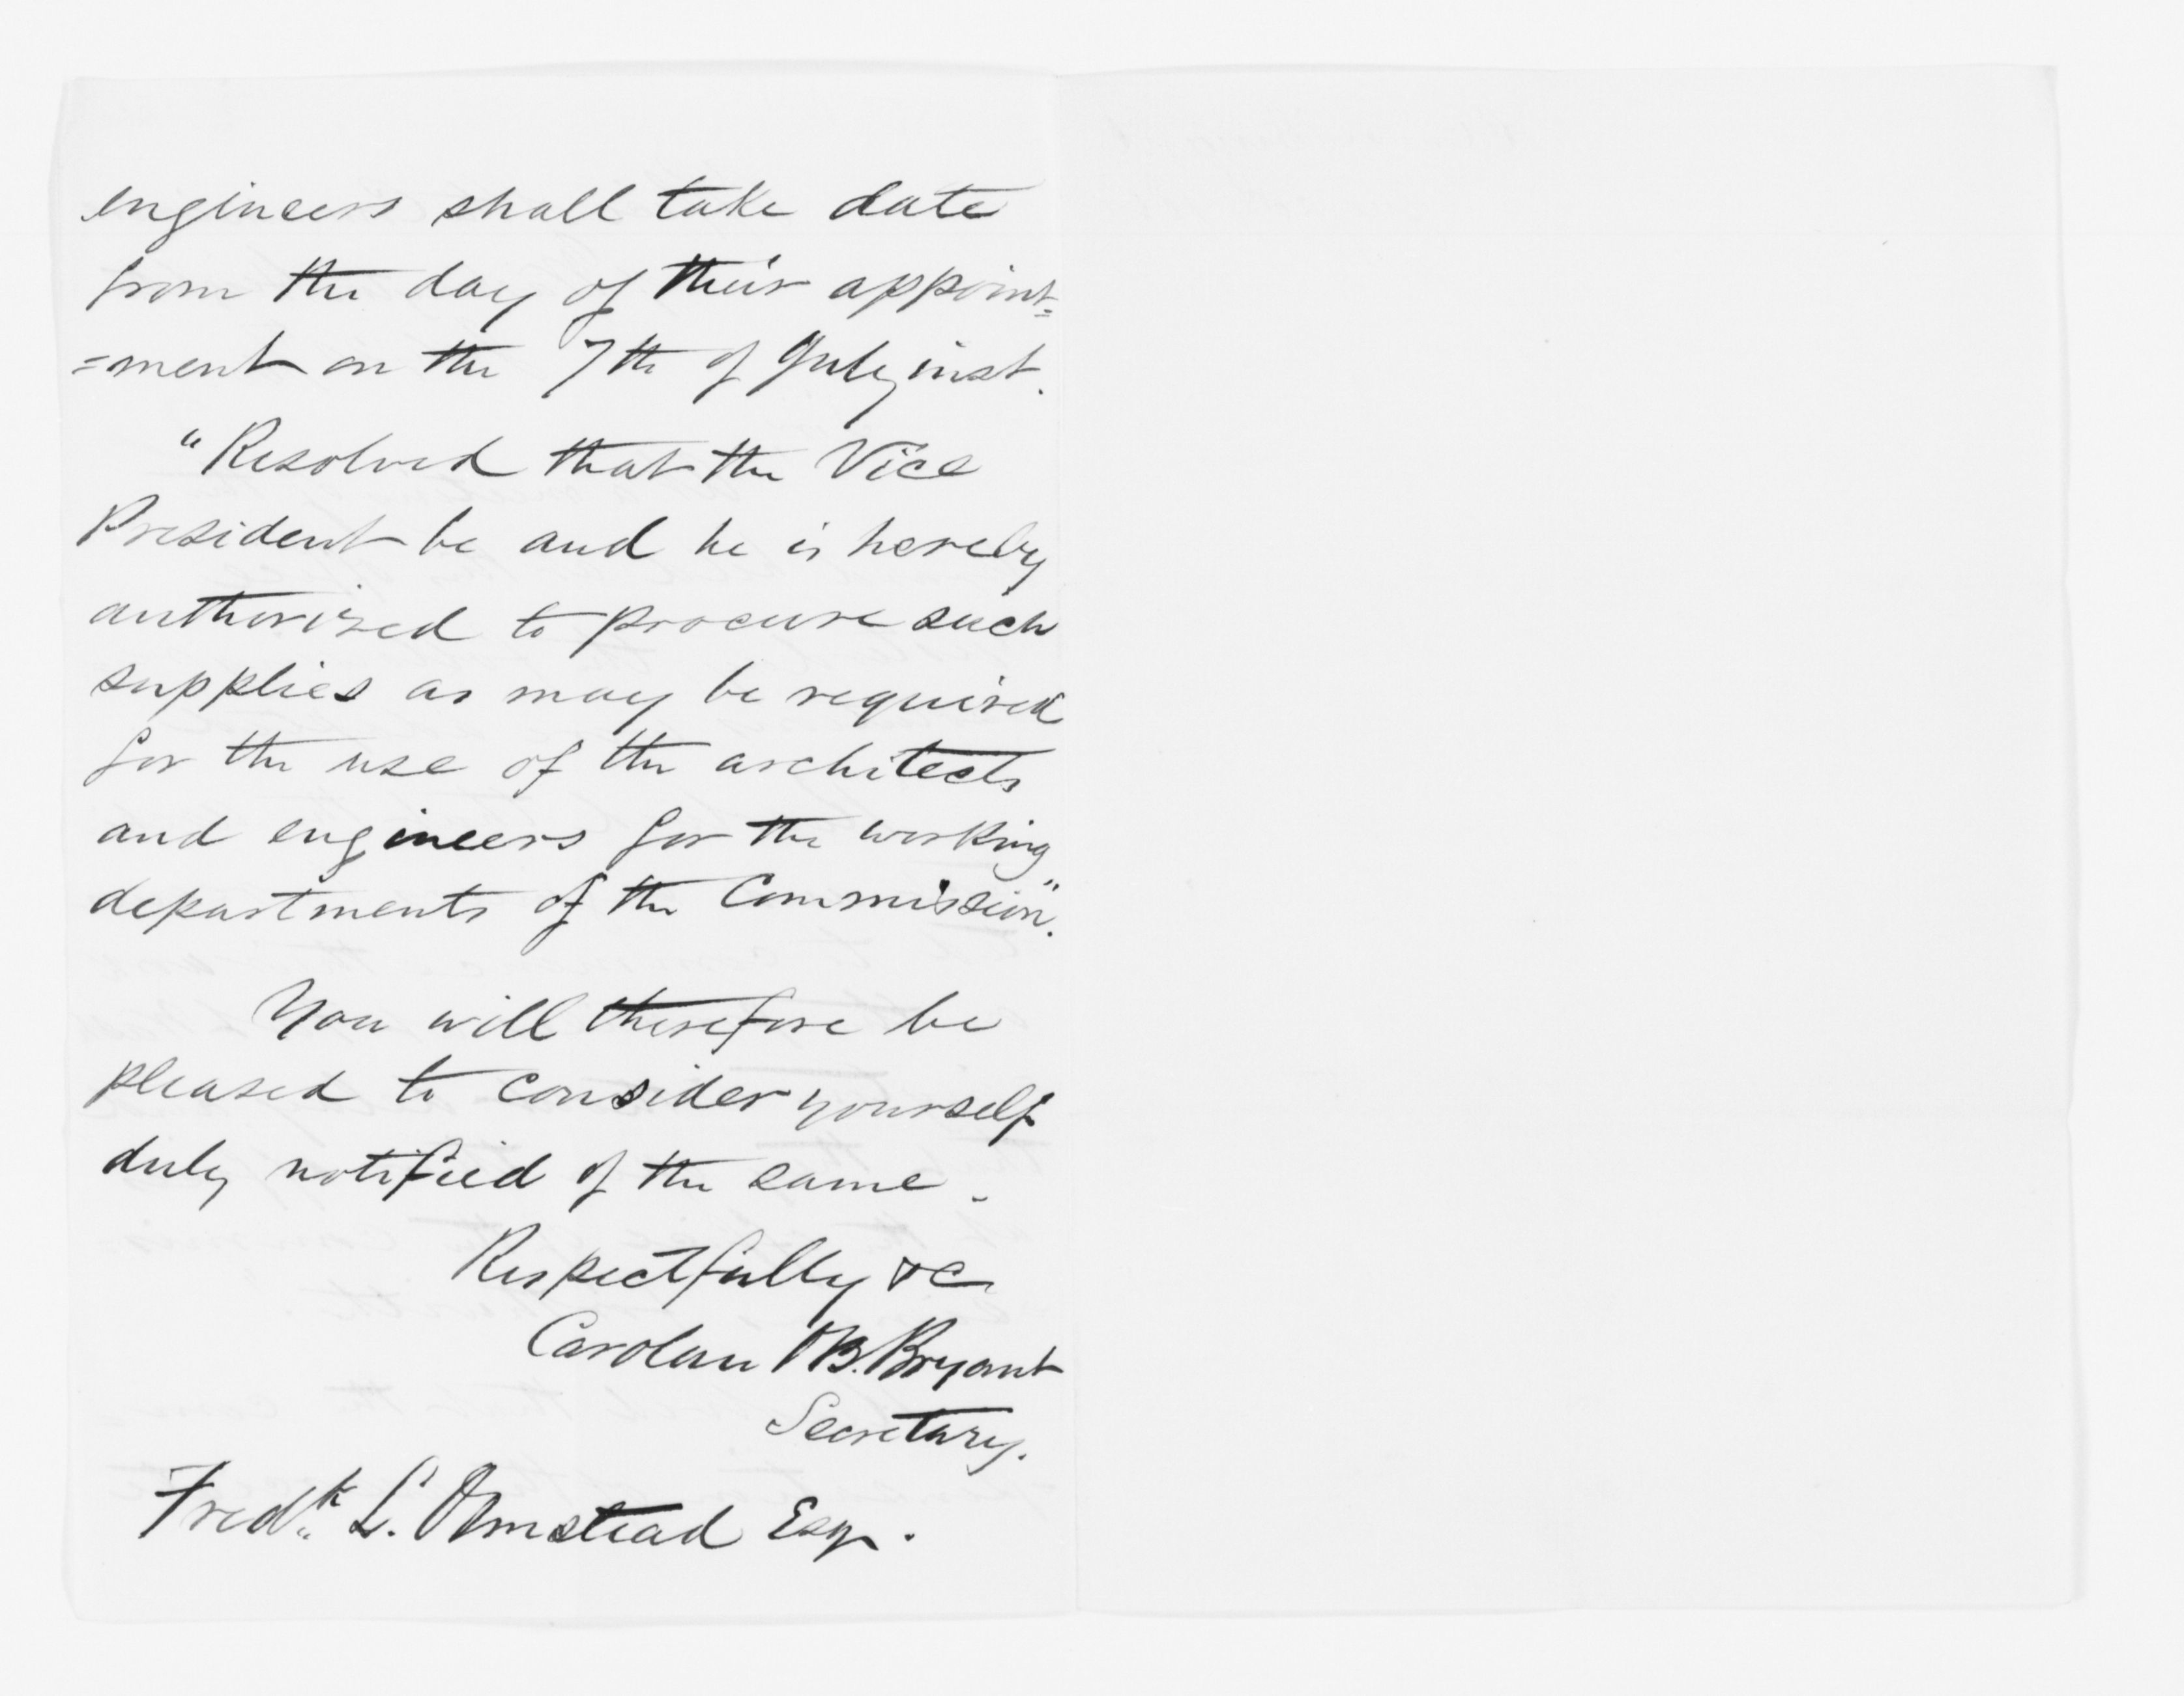 engineers shall take date
from the day of their appoint=
=ment on the 7th of July inst.
"Resolved that the Vice
President be and he is hereby
authorized to procure such
supplies as may be required
for the use of the architects
and engineers for the working
departments of the Commission".
You will therefore be
pleased to consider yourself
duly notified of the same.
Respectfully &c
Carolan O'B. Bryant
Secretary.
Fredk. L. Olmstead Esqr.